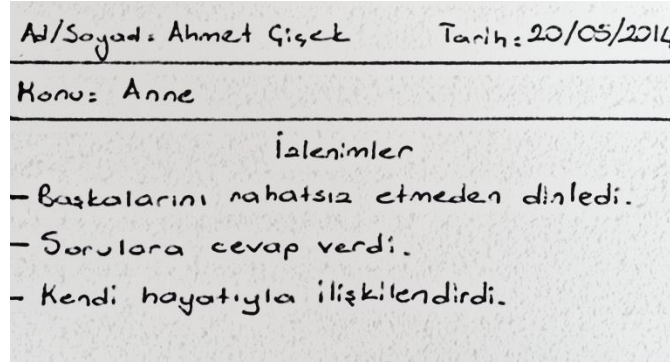 Ad/Soyad: Ahmet Çiçek Tarih: 20/05/2014
Konu: Anne
İzlenimler
- Başkalarını rahatsız etmeden dinledi.
- Sorulara cevap verdi.
- Kendi hayatıyla ilişkilendirdi.